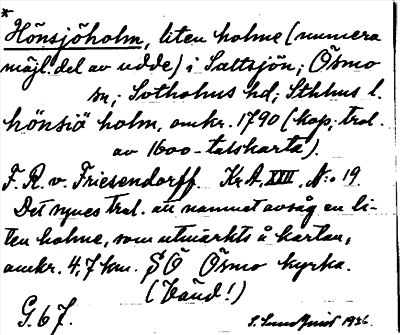 *
Hönsjöholm, liten holme (numera
möjl. del av udde) i Saltsjön; Ösmo
sn; Sotholms hd; Sthlms l.
hönsiö holm, omkr. 1790 (kop. trol.
av 1600-talskarta).
F. R. v. Friesendorff. Kr.A. XXIII, N:o 19
Det synes trol. att namnet avsåg en li-
ten holme, som utmärkts å kartan,
omkr. 4,7 km. SÖ Ösmo kyrka.
(Vänd!)
G. 67. 1936.